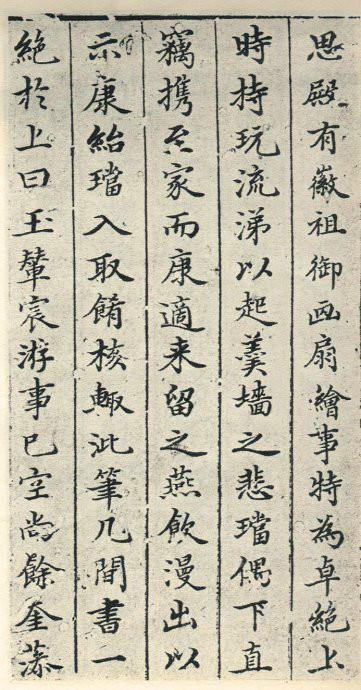 思殿有徽祖御画扇繪事特為卓絶上
時持玩流涕以起羹墻之悲璫偶下直
竊携至家而康適来留之燕飲漫出以
示康紿璫入取餚核輙泚筆几間書一
絶扵上曰玉輦宸游事已空尚餘奎藻